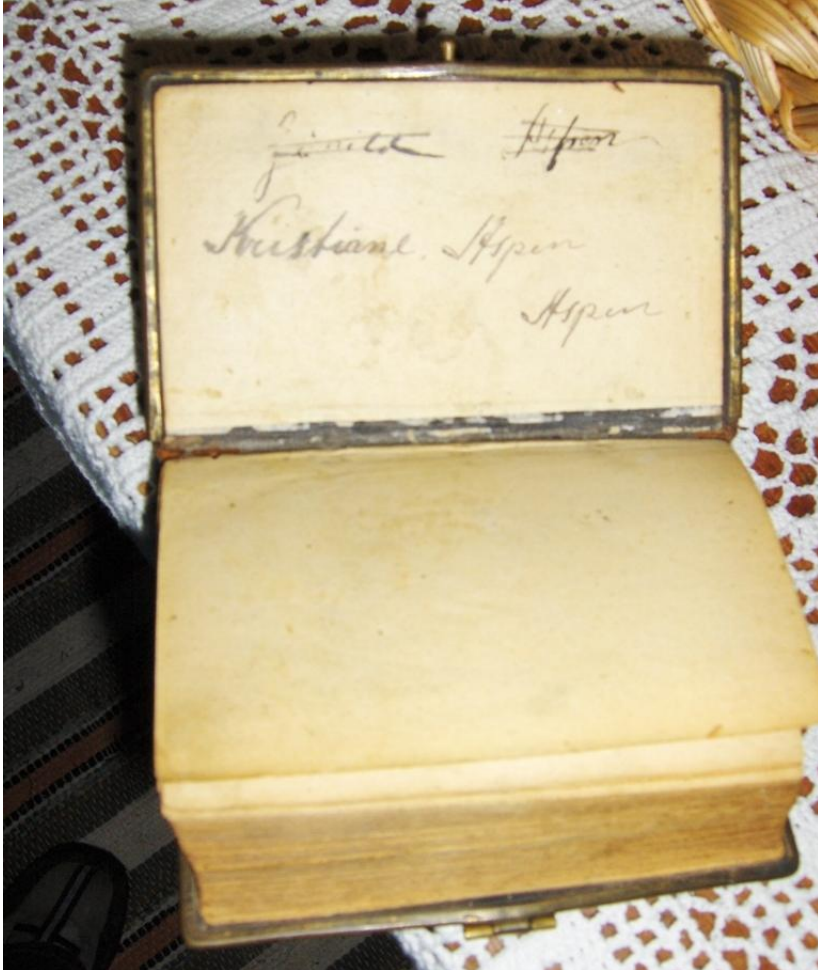 Aspen
Kristiane. Aspen
Aspen